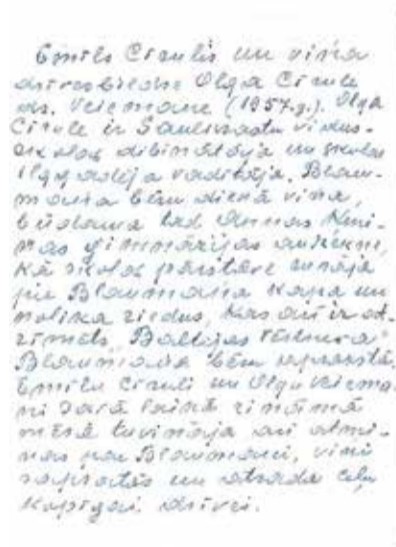 Emīls Cīrulis un viņa
dzīvesbiedre Olga Cīrule
dz. Veicmane (1957.g.). Olga
Cīrule ir Saulkrastu vidus-
skolas dibinātāja un skolas
ilggadēja vadītāja. Blau-
maņa bēru dienā viņa,
būdama tad Annas Ķeni-
ņas ģimnāzijas audzēkne,
kā skolas pārstāve runāja
pie Blaumaņa kapa un
nolika ziedus, kas arī ir at-
zīmēts "Baltijas Vēstnesa"
Blaumaņa bēru aprakstā.
Emīlu Cīruli un Olgu Veicma-
ni savā laikā zināmā
mērā tuvināja arī atmi-
ņas par Blaumani, viņi
saprotas un atrada ceļu
kopīgai dzīvei.